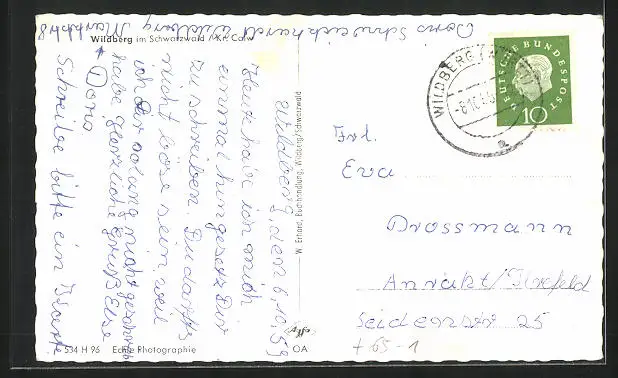 Doris Schweickhardt Wildberg Marktstr 8
Wildberg im Schwarzwald / Kr. Calw
Wildberg, den 6.10.59
Heute habe ich mich
einmal hingesetzt Dir
zu schreiben. Du darfst
nicht böse sein weil
ich Dir solang nicht geschrieben
habe herzliche Grüß Else
Doris
Schreibe bitte ein Karte
W. Erhard, Buchhandlung, Wildberg/Schwarzwald
534 H 96 Echte Photographie
OA
WILDBERG
DEUTSCHE BUNDESPOST
10
Frl.
Eva
Drossmann
Anrath/Krefeld
Seidenstr 25
+ 65-1